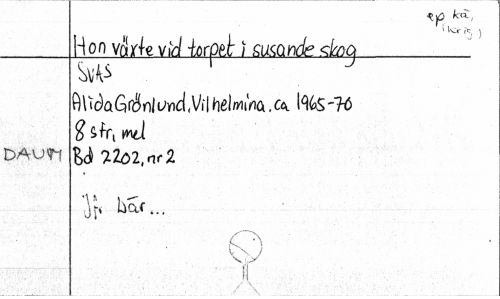 ep kä,
(krig)
Hon växte vid torpet i susande skog
SVAS
Alida Grönlund, Vilhelmina, ca 1965-70
8 str, mel
DAUM Bd 2202, nr 2
Jfr Där...